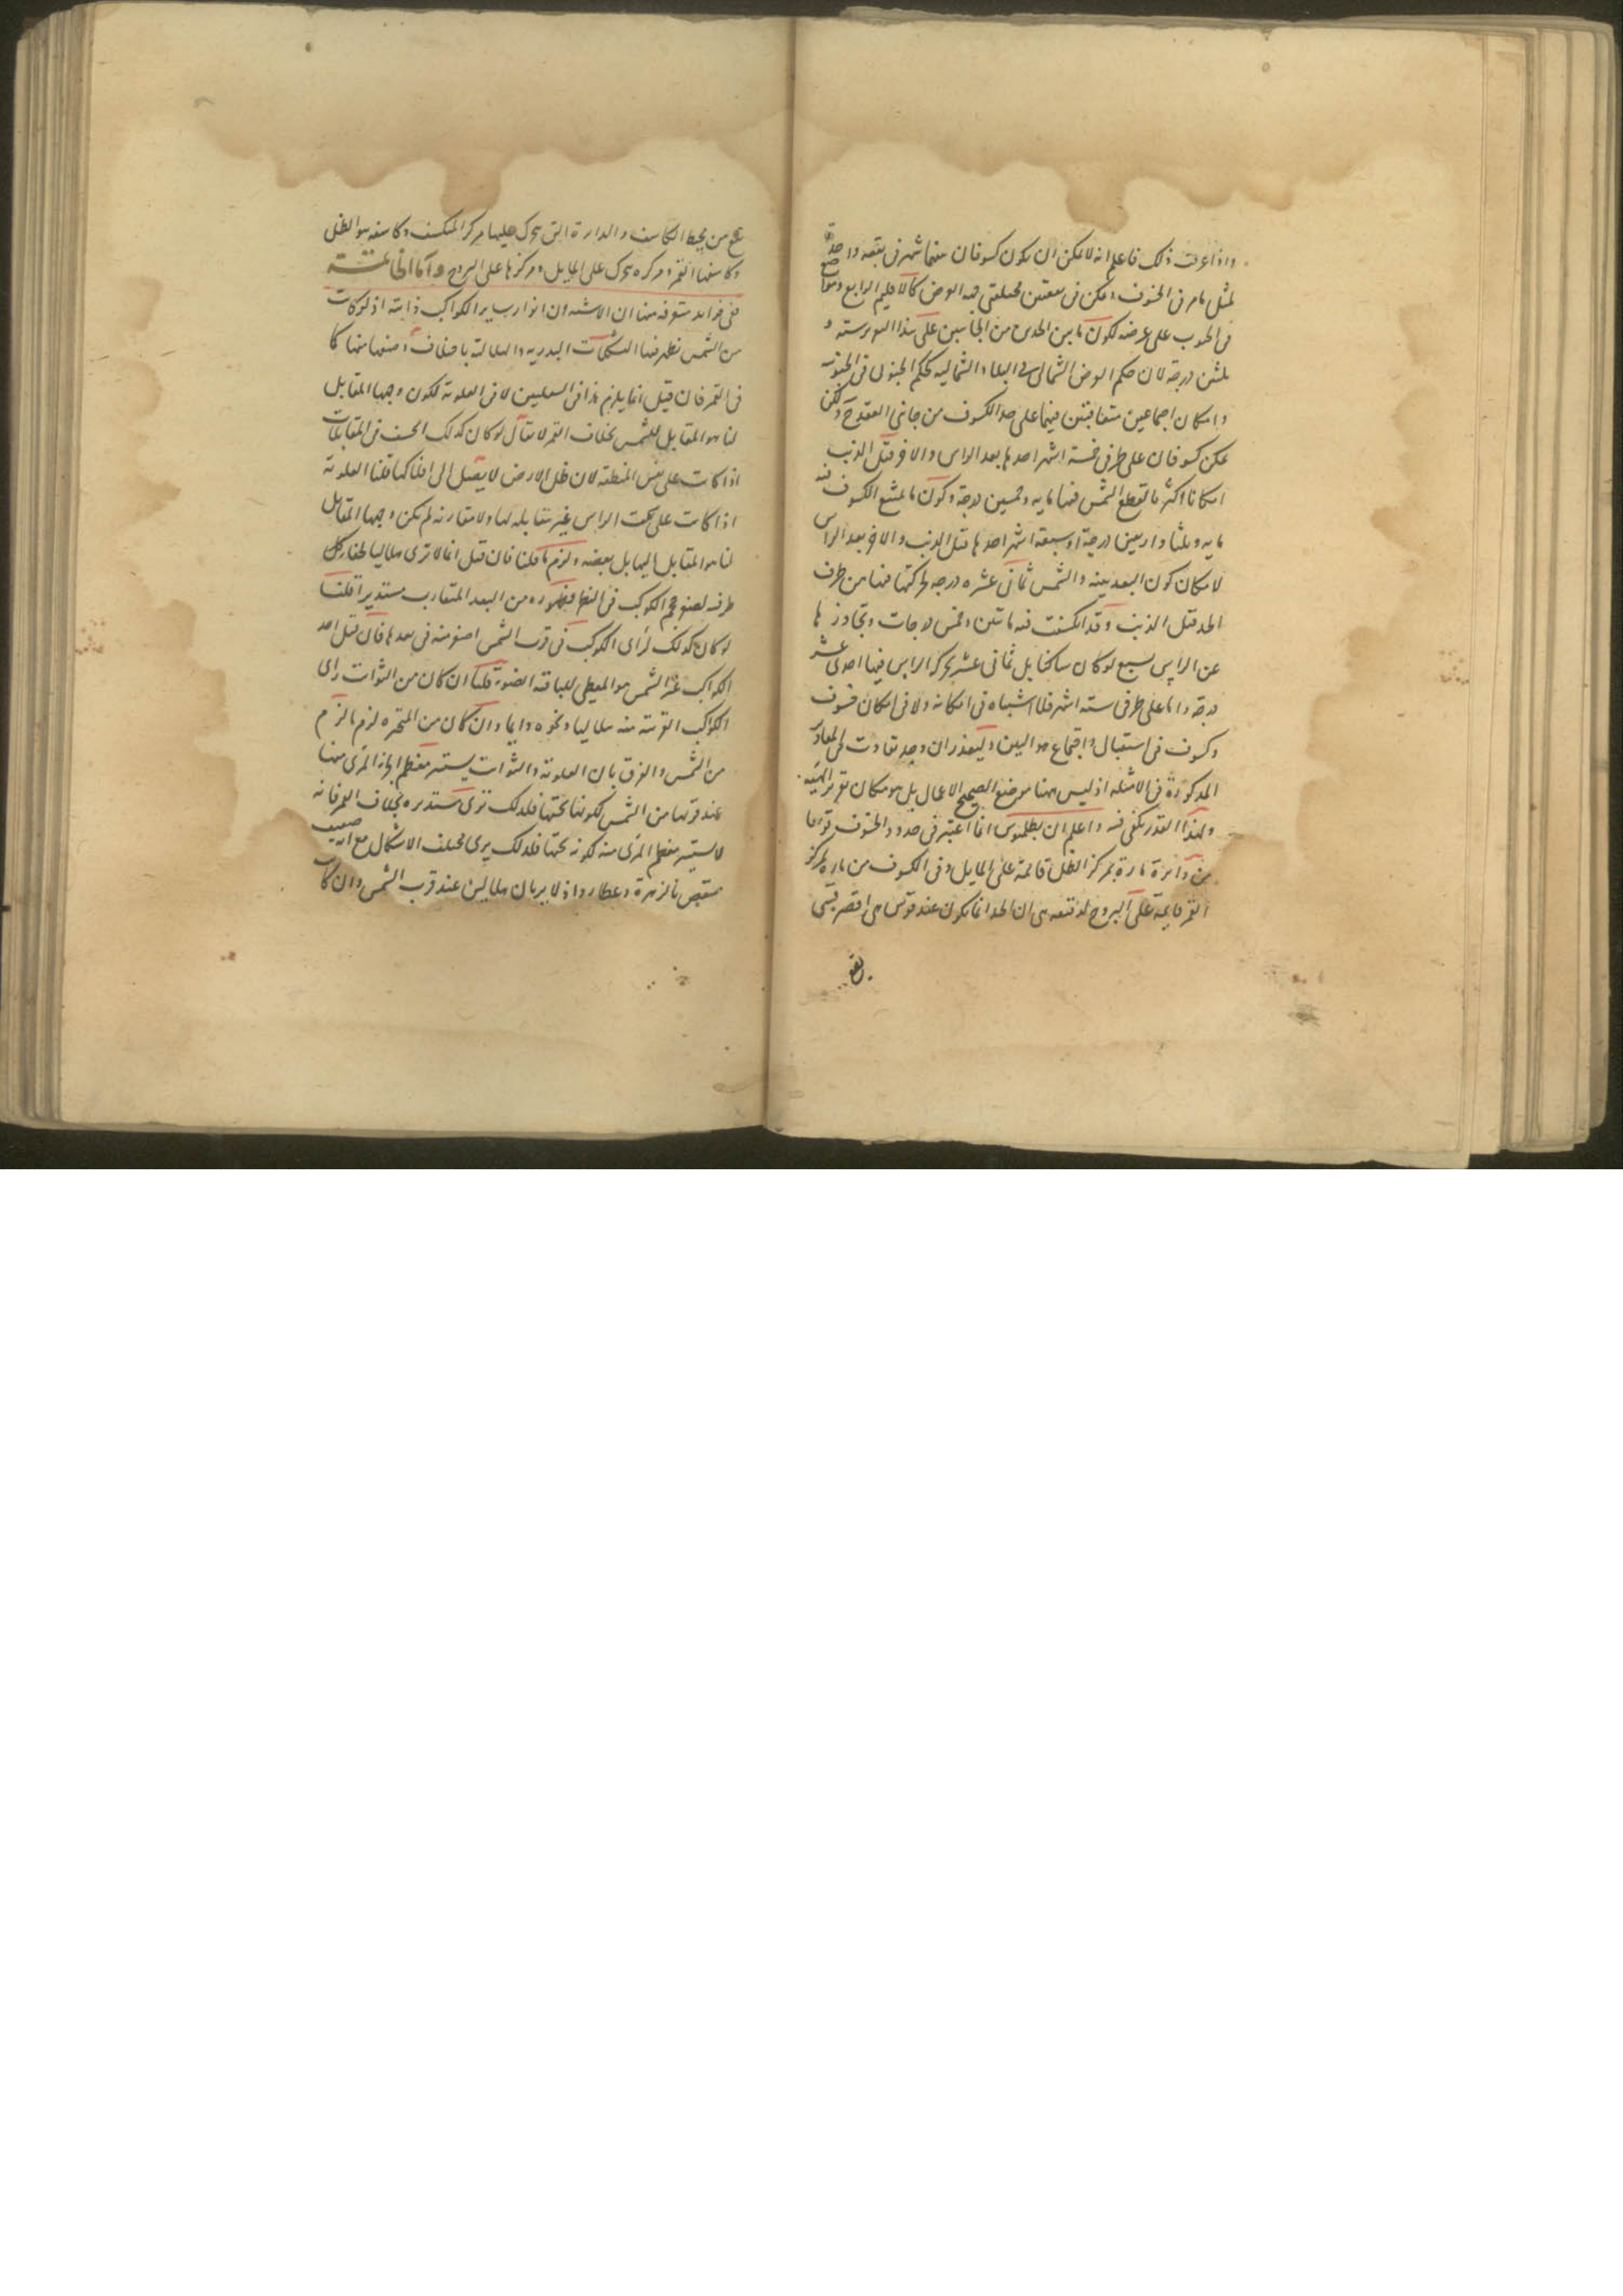 واذا عرفت ذلك فاعلم انه لا يمكن ان يكون كسوفان بينهما شهر فى بقعه واحدة
لمثل ما مر فى الخسوف ويمكن فى بقعتين مختلفتى جهه العرض كالاقليم الرابع ومواضع
فى الجنوب على عرضه لكون ما بين الحدين من الجانبين على هذا
ثلثين درجة لان حكم العرض الشمالى فى البلاد الشماليه كحكم الجنوبى فى الجنوبيه
وامكان اجتماعين متعاقبتين فيما على حد الكسوف من جانبى العقدة ح ولكن
يمكن كسوفان على طرفى خمسة اشهر احدها بعد الراس والاخر قبل الذنب
امكانا اكثر ما تقطع الشمس فيها مايه وخمسين درجة وكون ما يمتنع الكسوف فيه
مايه وثلثا واربعين درجة او سبعة اشهر احدها قبل الذنب والاخر بعد الراس
لامكان كون البعد بينه والشمس ثمانى عشره درجه لحركتها فيها من طرف
الحد قبل الذنب وقد انكسفت فيه مائتين وخمس درجات وتجاوزها
عن الراس بسبع لو كان ساكنا بل ثمانى عشر لحركه الراس فيها احدى عشر
درجة واما على طرفى سته اشهر فلا اشتباه فى امكانه ولا فى امكان خسوف
وكسوف فى استقبال واجتماع متواليين وليعذر ان وجد تفاوت فى المقادير
المذكورة فى الامثله اذ ليس ههنا موضع تصحيح الاعمال بل هو مكان تقرير الهيئه
ولهذا القدر يكفى فيه واعلم ان بطلميوس انما اعتبر فى حدود الخسوف قوسا
من دائرة مارة بمركز الظل قائمة على المايل وفى الكسوف من مارة بمركز
القمر قايمة على البروج لدقيقه هى ان الحد انما يكون عند قوس هى اقصر قسى
تقع
تقع من محيط الكاسف والدايرة التى يتحرك عليها مركز المنكسف وكاسفه هو الظل
وكاسفها القمر ومركزه يتحرك على المايل ومركزها على البروج واما الخاتمة
ففى فوايد متفرقه منها ان الاشبه ان انوار ساير الكواكب ذاتيه اذ لو كانت
من الشمس لظهر فيها التشكلات البدريه والهلاليه باختلاف وضعها منها كما
فى القمر فان قيل انما يلزم هذا فى السفليين لا فى العلوية لكون وجهها المقابل
لنا هو المقابل للشمس بخلاف القمر لا يقال لو كان كذلك انخسف فى المقابلات
اذا كانت على نفس المنطقه لان ظل الارض لا يصل الى افلاكها قلنا العلوية
اذا كانت على سمت الراس غير مقابله لها ولا مقارنه لم يكن وجهها المقابل
لنا هو المقابل اليها بل بعضه ولزم ما قلنا فان قيل انما لا ترى هلاليا لخفاء كل
طرفه لصغر حجم الكوكب فى النظر فظهوره من البعد المتقارب مستديرا قلنا
لو كان كذلك لرأى الكوكب فى قرب الشمس اصغر منه فى بعدها فان قيل احد
الكواكب غير الشمس هو المعطى للباقيه الضوء قلنا ان كان من الثوابت راى
الكواكب القريبه منه هلاليا ونحوه دايما وان كان من المتحيره لزم ما لزم
من الشمس والفرق بان العلوية والثوابت يستنير معظم اجزاء المرئى منها
عند قربها من الشمس لكونها تحتها فلذلك ترى مستديره بخلاف القمر فانه
لا يستنير معظم المرئى منه لكونه تحتها فلذلك يرى مختلف الاشكال مع انه ضعيف
منتقض بالزهرة وعطارد اذ لا يريان هلاليين عند قرب الشمس وان كان